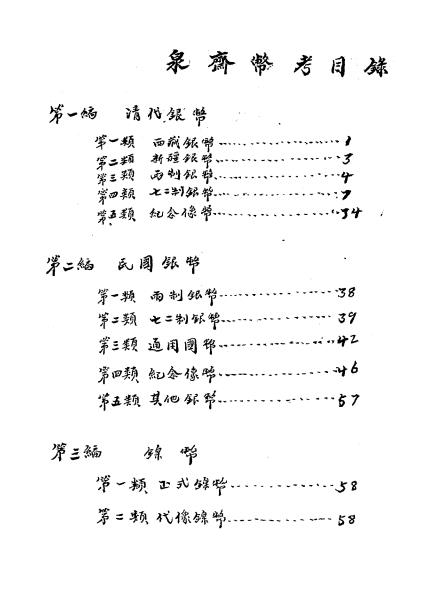 泉齋幣考目錄
第一編 清代銀幣
第一類 西藏銀幣……………1
第二類 新疆銀幣……………3
第三類 兩制銀幣……………4
第四類 七二制銀幣……………7
第五類 紀念像幣……………34
第二編 民國銀幣
第一類 兩制銀幣……………38
第二類 七二制銀幣……………39
第三類 通用國幣……………42
第四類 紀念像幣……………46
第五類 其他銀幣……………57
第三編 鎳幣
第一類 正式鎳幣……………58
第二類 代像鎳幣……………58